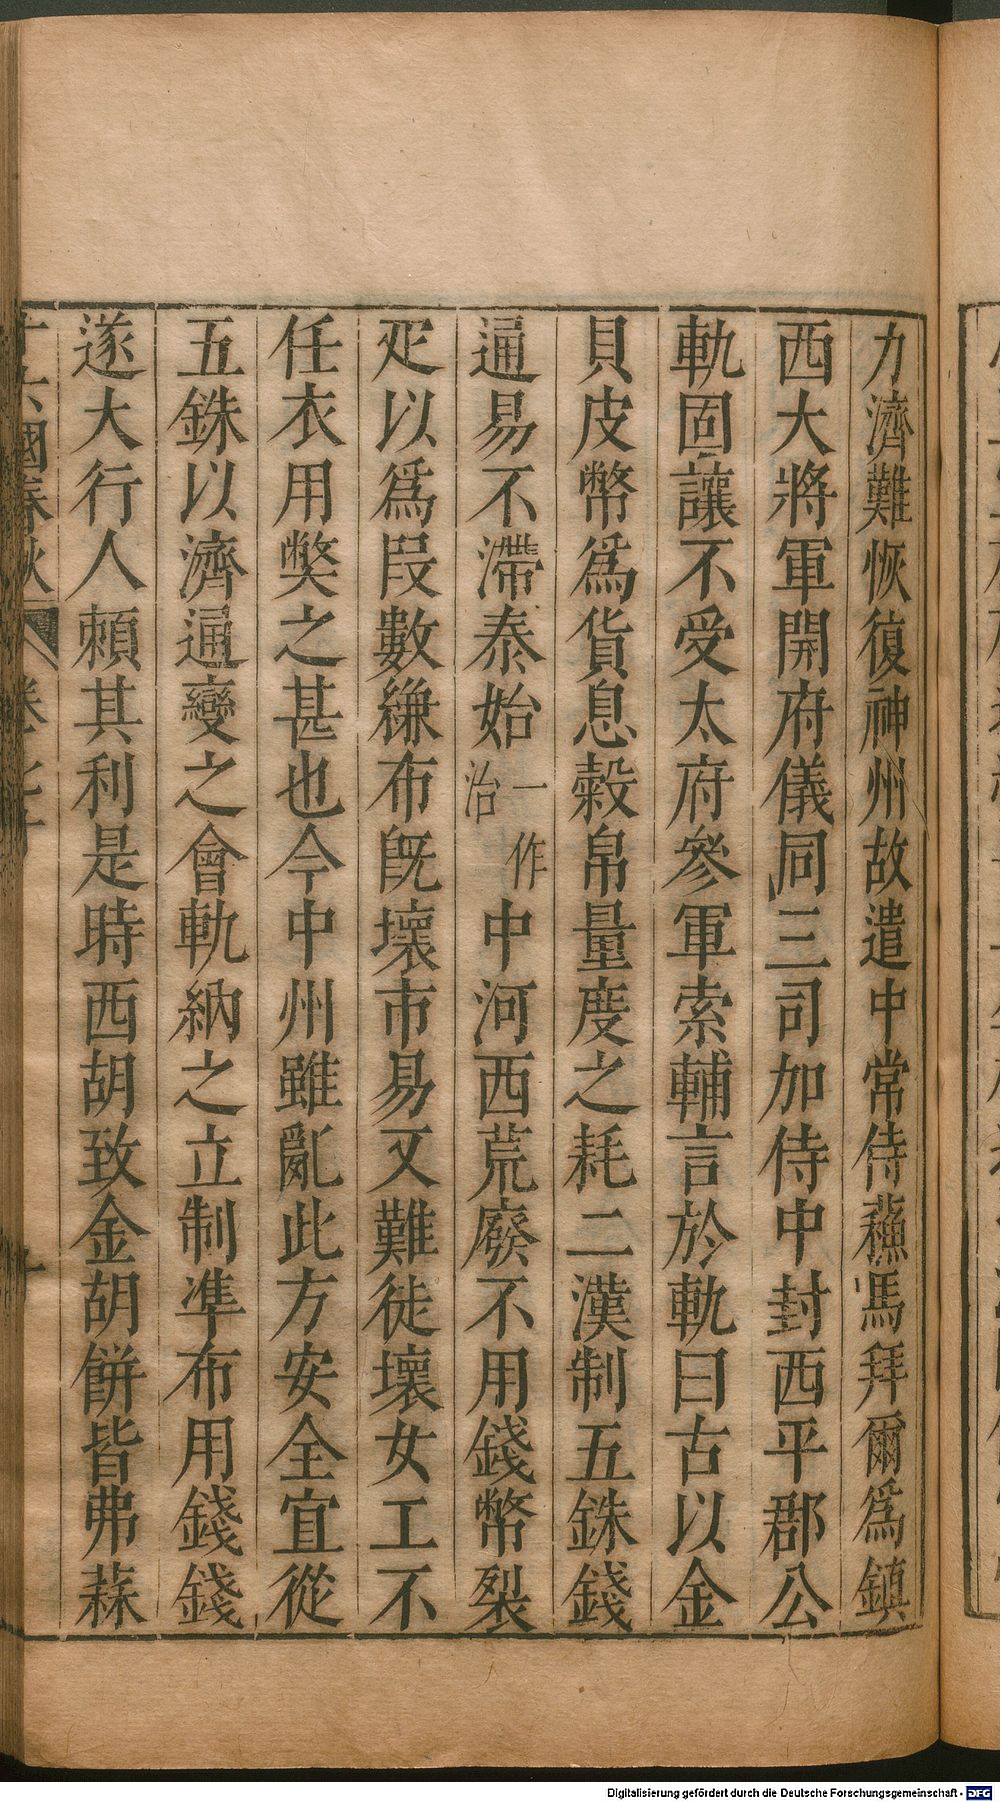 力濟難恢復神州故遣中常侍蘓馬拜爾爲鎮
西大將軍開府儀同三司加侍中封西平郡公
軌固讓不受太府參軍索輔言於軌曰古以金
貝皮幣爲貨息穀帛量度之耗二漢制五銖錢
通易不滯泰始一作治中河西荒廢不用錢幣裂
疋以爲段數縑布旣壞市易又難徒壞女工不
任衣用獘之甚也今中州雖亂此方安全宜從
五銖以濟通變之會軌納之立制準布用錢錢
遂大行人頼其利是時西胡致金胡餅皆弗蒜
國春秋
Digitalisierung gefördert durch die Deutsche Forschungsgemeinschaft - DFG